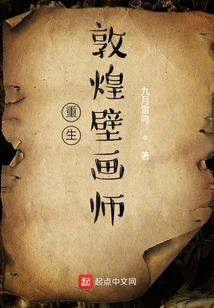 重生
敦煌壁画师
九月雷鸣。著
起点
起点中文网